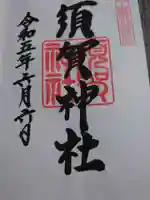 須賀神社
令和五年六月六日